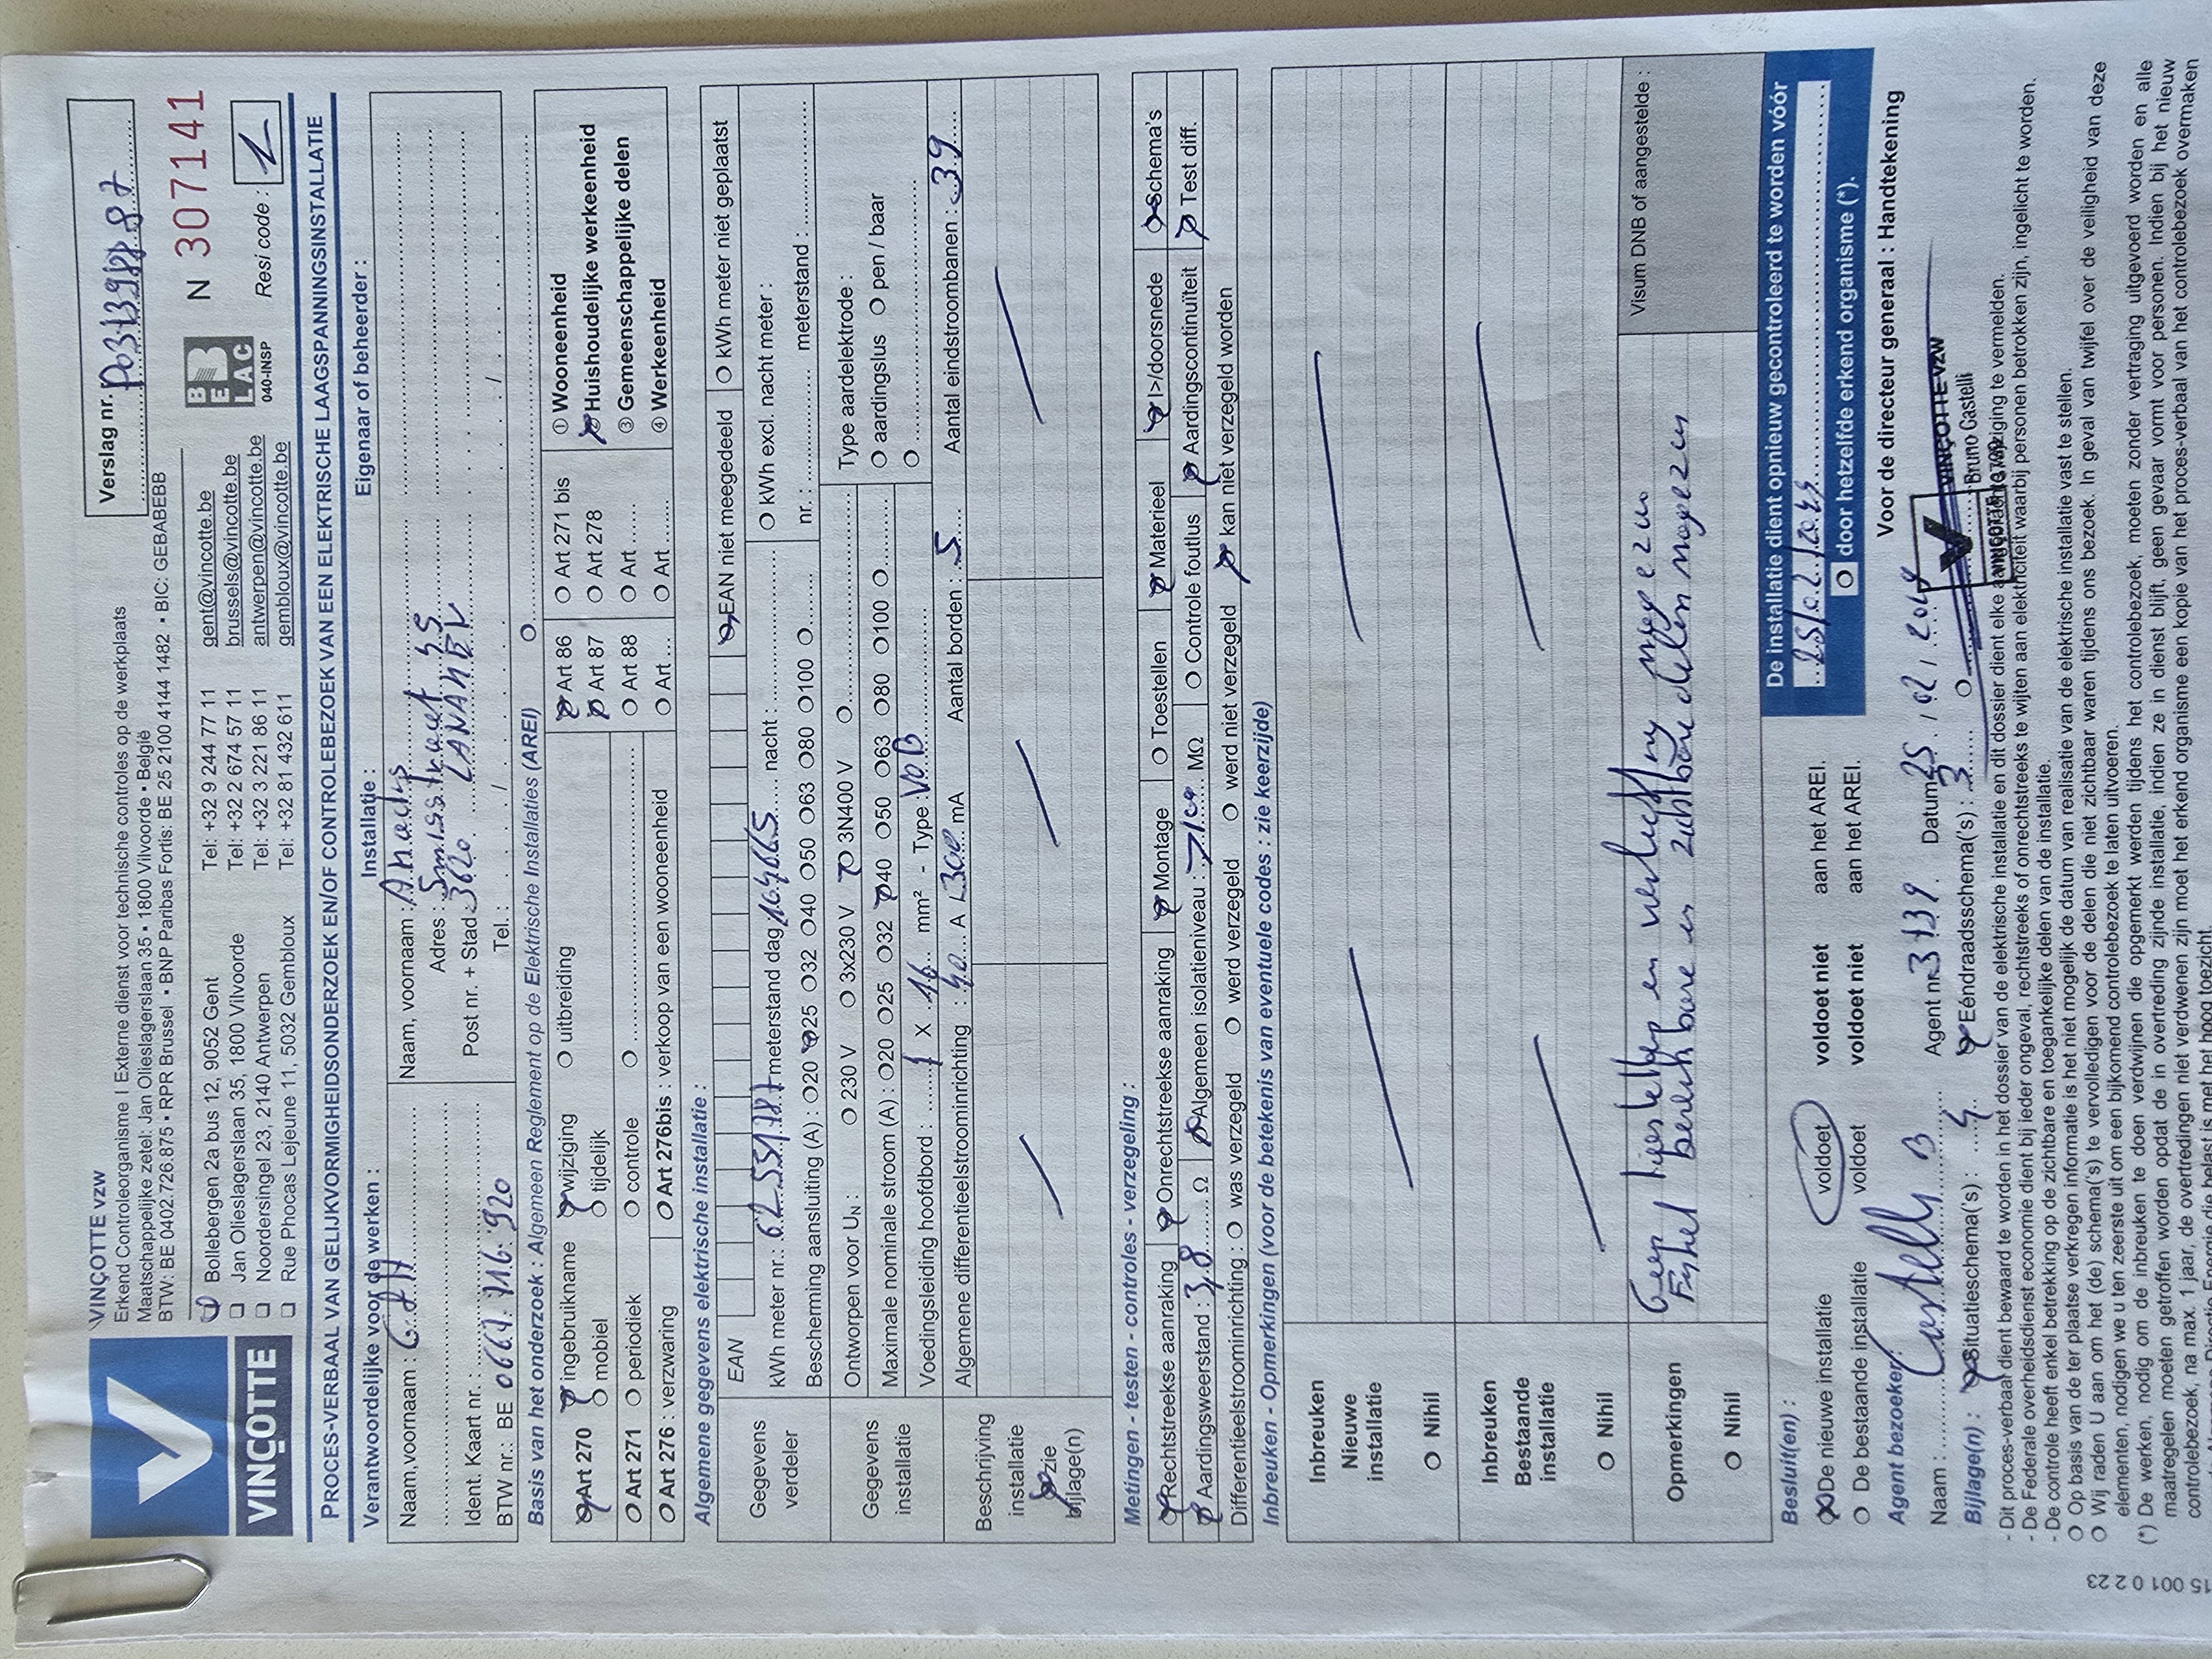 VINÇOTTE
VINÇOTTE vzw
Erkend Controleorganisme I Externe dienst voor technische controles op de werkplaats
Maatschappelijke zetel: Jan Olieslagerslaan 35 • 1800 Vilvoorde • België
BTW: BE 0402.726.875 • RPR Brussel • BNP Paribas Fortis: BE 25 2100 4144 1482 • BIC: GEBABEBB
Bollebergen 2a bus 12, 9052 Gent Tel: +32 9 244 77 11 gent@vincotte.be
Jan Olieslagerslaan 35, 1800 Vilvoorde Tel: +32 2 674 57 11 brussels@vincotte.be
Noordersingel 23, 2140 Antwerpen Tel: +32 3 221 86 11 antwerpen@vincotte.be
Rue Phocas Lejeune 11, 5032 Gembloux Tel: +32 81 432 611 gembloux@vincotte.be
Verslag nr.
BELAC
040-INSP
N 307141
Resi code : 1
PROCES-VERBAAL VAN GELIJKVORMIGHEIDSONDERZOEK EN/OF CONTROLEBEZOEK VAN EEN ELEKTRISCHE LAAGSPANNINGSINSTALLATIE
Verantwoordelijke voor de werken : Installatie : Eigenaar of beheerder :
Naam,voornaam : Naam, voornaam :
Adres : Smisstraat 45
Ident. Kaart nr. : Post nr. + Stad : 3620 LANAKEN
BTW nr.: BE 0667.716.920 Tel. :
Basis van het onderzoek : Algemeen Reglement op de Elektrische Installaties (AREI)
Art 270 ingebruikname wijziging uitbreiding Art 86 Art 271 bis ① Wooneenheid
mobiel tijdelijk Art 87 Art 278 Huishoudelijke werkeenheid
Art 271 periodiek controle Art 88 Art ③ Gemeenschappelijke delen
Art 276 : verzwaring Art 276bis : verkoop van een wooneenheid Art Art ④ Werkeenheid
Algemene gegevens elektrische installatie :
Gegevens verdeler
EAN EAN niet meegedeeld kWh meter niet geplaatst
kWh meter nr.: meterstand dag 164665 nacht : kWh excl. nacht meter :
Bescherming aansluiting (A) : 20 25 32 40 50 63 80 100 nr. : meterstand :
Gegevens installatie
Ontworpen voor UN : 230 V 3x230 V 3N400 V Type aardelektrode :
Maximale nominale stroom (A) : 20 25 32 40 50 63 80 100 aardingslus pen / baar
Voedingsleiding hoofdbord : 1 X 16 mm² - Type : VOB
Algemene differentieelstroominrichting : 40 A 300 mA Aantal borden : 5 Aantal eindstroombanen : 39
Beschrijving installatie
zie bijlage(n)
Metingen - testen - controles - verzegeling :
Rechtstreekse aanraking Onrechtstreekse aanraking Montage Toestellen Materieel I>/doorsnede Schema's
Aardingsweerstand : 3,8 Ω Algemeen isolatieniveau : MΩ Controle foutlus Aardingscontinuïteit Test diff.
Differentieelstroominrichting : was verzegeld werd verzegeld werd niet verzegeld kan niet verzegeld worden
Inbreuken - Opmerkingen (voor de betekenis van eventuele codes : zie keerzijde)
Inbreuken Nieuwe installatie
Nihil
Inbreuken Bestaande installatie
Nihil
Opmerkingen
Nihil
Geen toestellen en verlichting nagezien
Enkel bereikbare en zichtbare delen nagezien
Visum DNB of aangestelde :
Besluit(en) :
De nieuwe installatie voldoet voldoet niet aan het AREI.
De bestaande installatie voldoet voldoet niet aan het AREI.
De installatie dient opnieuw gecontroleerd te worden vóór
door hetzelfde erkend organisme (*).
Agent bezoeker: Voor de directeur generaal : Handtekening
Naam : Castelli B Agent nr. 3739 Datum 25/02/20
VINÇOTTE VZW
Bruno Castelli
VINÇOTTE
Bijlage(n) : Situatieschema('s) : 4 Eéndraadsschema('s) : 3
- Dit proces-verbaal dient bewaard te worden in het dossier van de elektrische installatie en dit dossier dient elke aangebrachte wijziging te vermelden.
- De Federale overheidsdienst economie dient bij ieder ongeval, rechtstreeks of onrechtstreeks te wijten aan elektriciteit waarbij personen betrokken zijn, ingelicht te worden.
- De controle heeft enkel betrekking op de zichtbare en toegankelijke delen van de installatie.
Op basis van de ter plaatse verkregen informatie is het niet mogelijk de datum van realisatie van de elektrische installatie vast te stellen.
Wij raden U aan om het (de) schema('s) te vervolledigen voor de delen die niet zichtbaar waren tijdens ons bezoek. In geval van twijfel over de veiligheid van deze
elementen, nodigen we u ten zeerste uit om een bijkomend controlebezoek te laten uitvoeren.
(*) De werken, nodig om de inbreuken te doen verdwijnen die opgemerkt werden tijdens het controlebezoek, moeten zonder vertraging uitgevoerd worden en alle
maatregelen moeten getroffen worden opdat de in overtreding zijnde installatie, indien ze in dienst blijft, geen gevaar vormt voor personen. Indien bij het nieuw
controlebezoek, na max. 1 jaar, de overtredingen niet verdwenen zijn moet het erkend organisme een kopie van het proces-verbaal van het controlebezoek overmaken
15 001 0 2 23